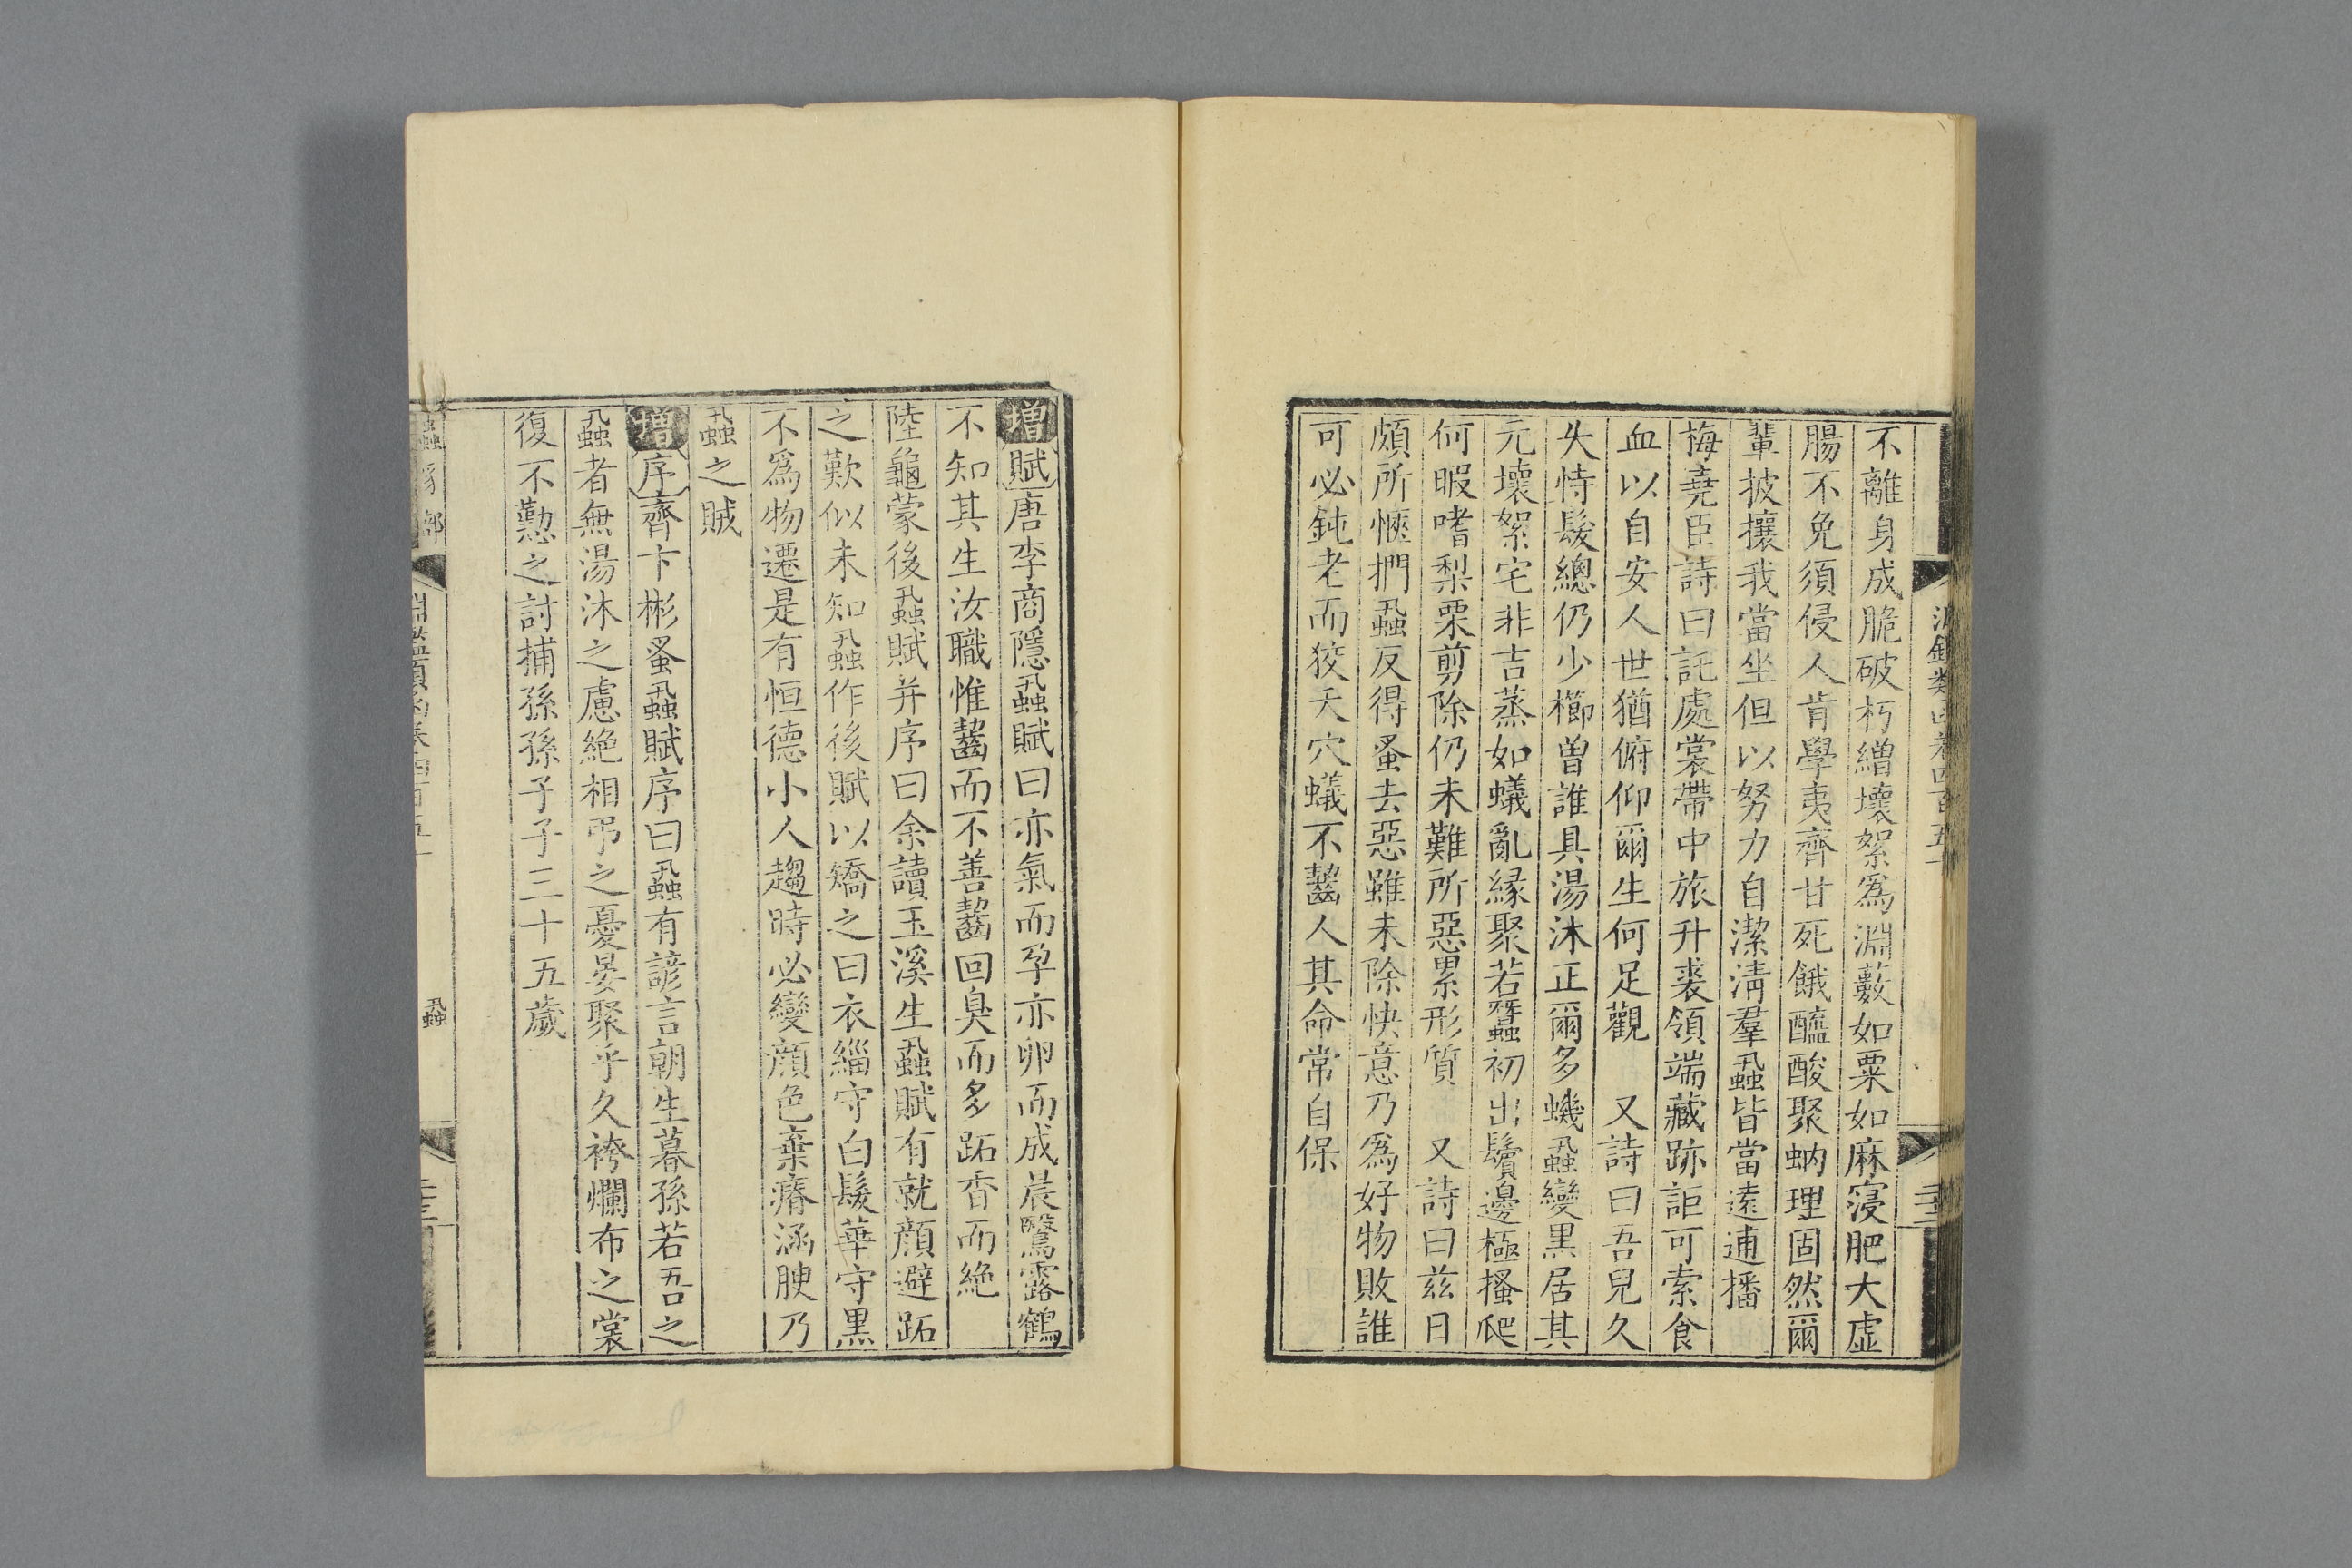 不離身成脆破朽繒壞絮爲淵藪如粟如麻寖肥大虛
腸不免須侵人肯學夷齊甘死餓醯酸聚蚋理固然爾
輩披攘我當坐但以努力自潔清羣蝨皆當遠逋播
梅堯臣詩曰託處裳帶中旅升裘領端藏跡詎可索食
血以自安人世猶俯仰爾生何足觀　又詩曰吾兒久
失恃髮總仍少櫛曽誰具湯沐正爾多蟣蝨變黒居其
元壞絮宅非吉蒸如蟻亂緣聚若蠶初出鬢邊極搔爬
何暇嗜梨栗剪除仍未難所惡累形質　又詩曰茲日
頗所愜捫蝨反得蚤去惡雖未除快意乃爲好物敗誰
可必鈍老而狡夭穴蟻不齧人其命常自保
增賦唐李商隱蝨賦曰亦氣而孕亦卵而成晨鷖露鶴
不知其生汝職惟齧而不善齧回臭而多跖香而絶
陸龜蒙後蝨賦并序曰余讀玉溪生蝨賦有就顔避跖
之歎似未知蝨作後賦以矯之曰衣緇守白髮華守黒
不爲物遷是有恒德小人趨時必變顔色棄瘠涵腴乃
蝨之賊
增序齊卞彬蚤蝨賦序曰蝨有諺言朝生暮孫若吾之
蝨者無湯沐之慮絶相弔之憂晏聚乎久袴爛布之裳
復不懃之討捕孫孫子子三十五歲
蝨